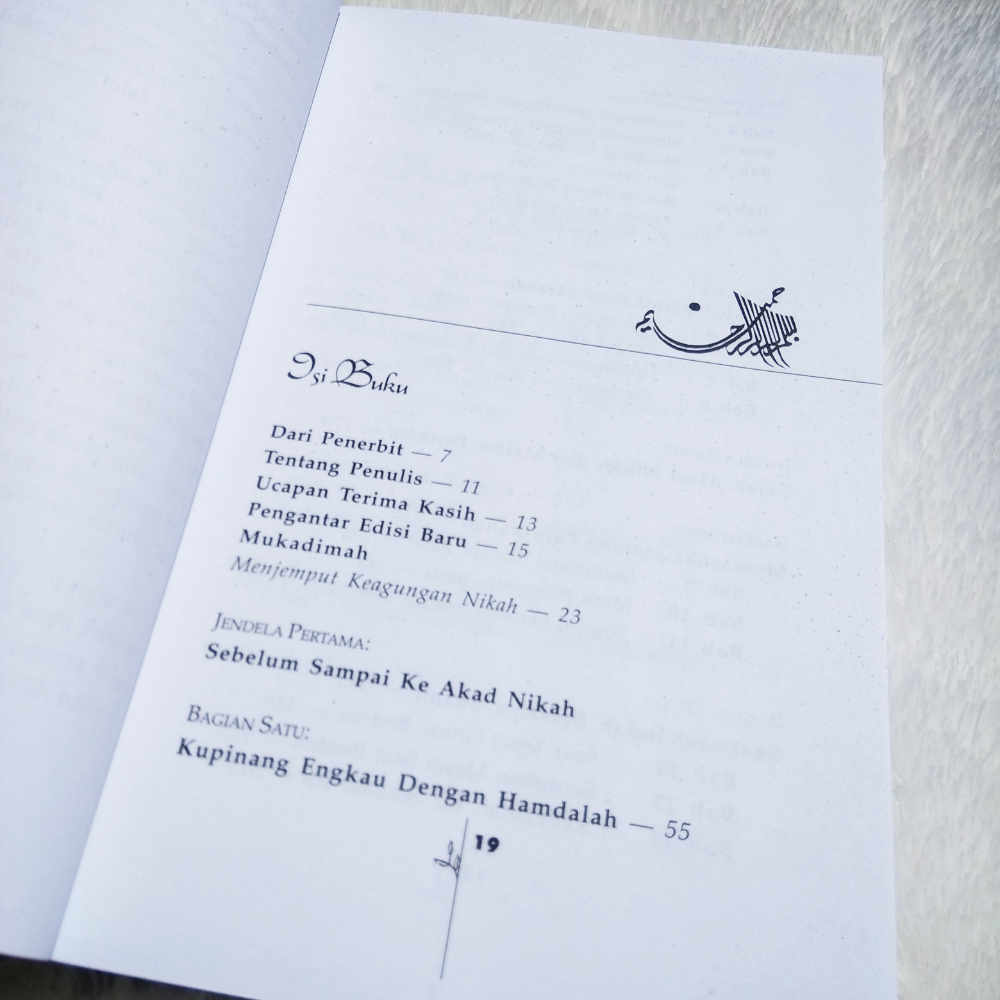 بسم الله الرحمن الرحيم
Isi Buku
Dari Penerbit — 7
Tentang Penulis — 11
Ucapan Terima Kasih — 13
Pengantar Edisi Baru — 15
Mukadimah
Menjemput Keagungan Nikah — 23
JENDELA PERTAMA:
Sebelum Sampai Ke Akad Nikah
BAGIAN SATU:
Kupinang Engkau Dengan Hamdalah — 55
19